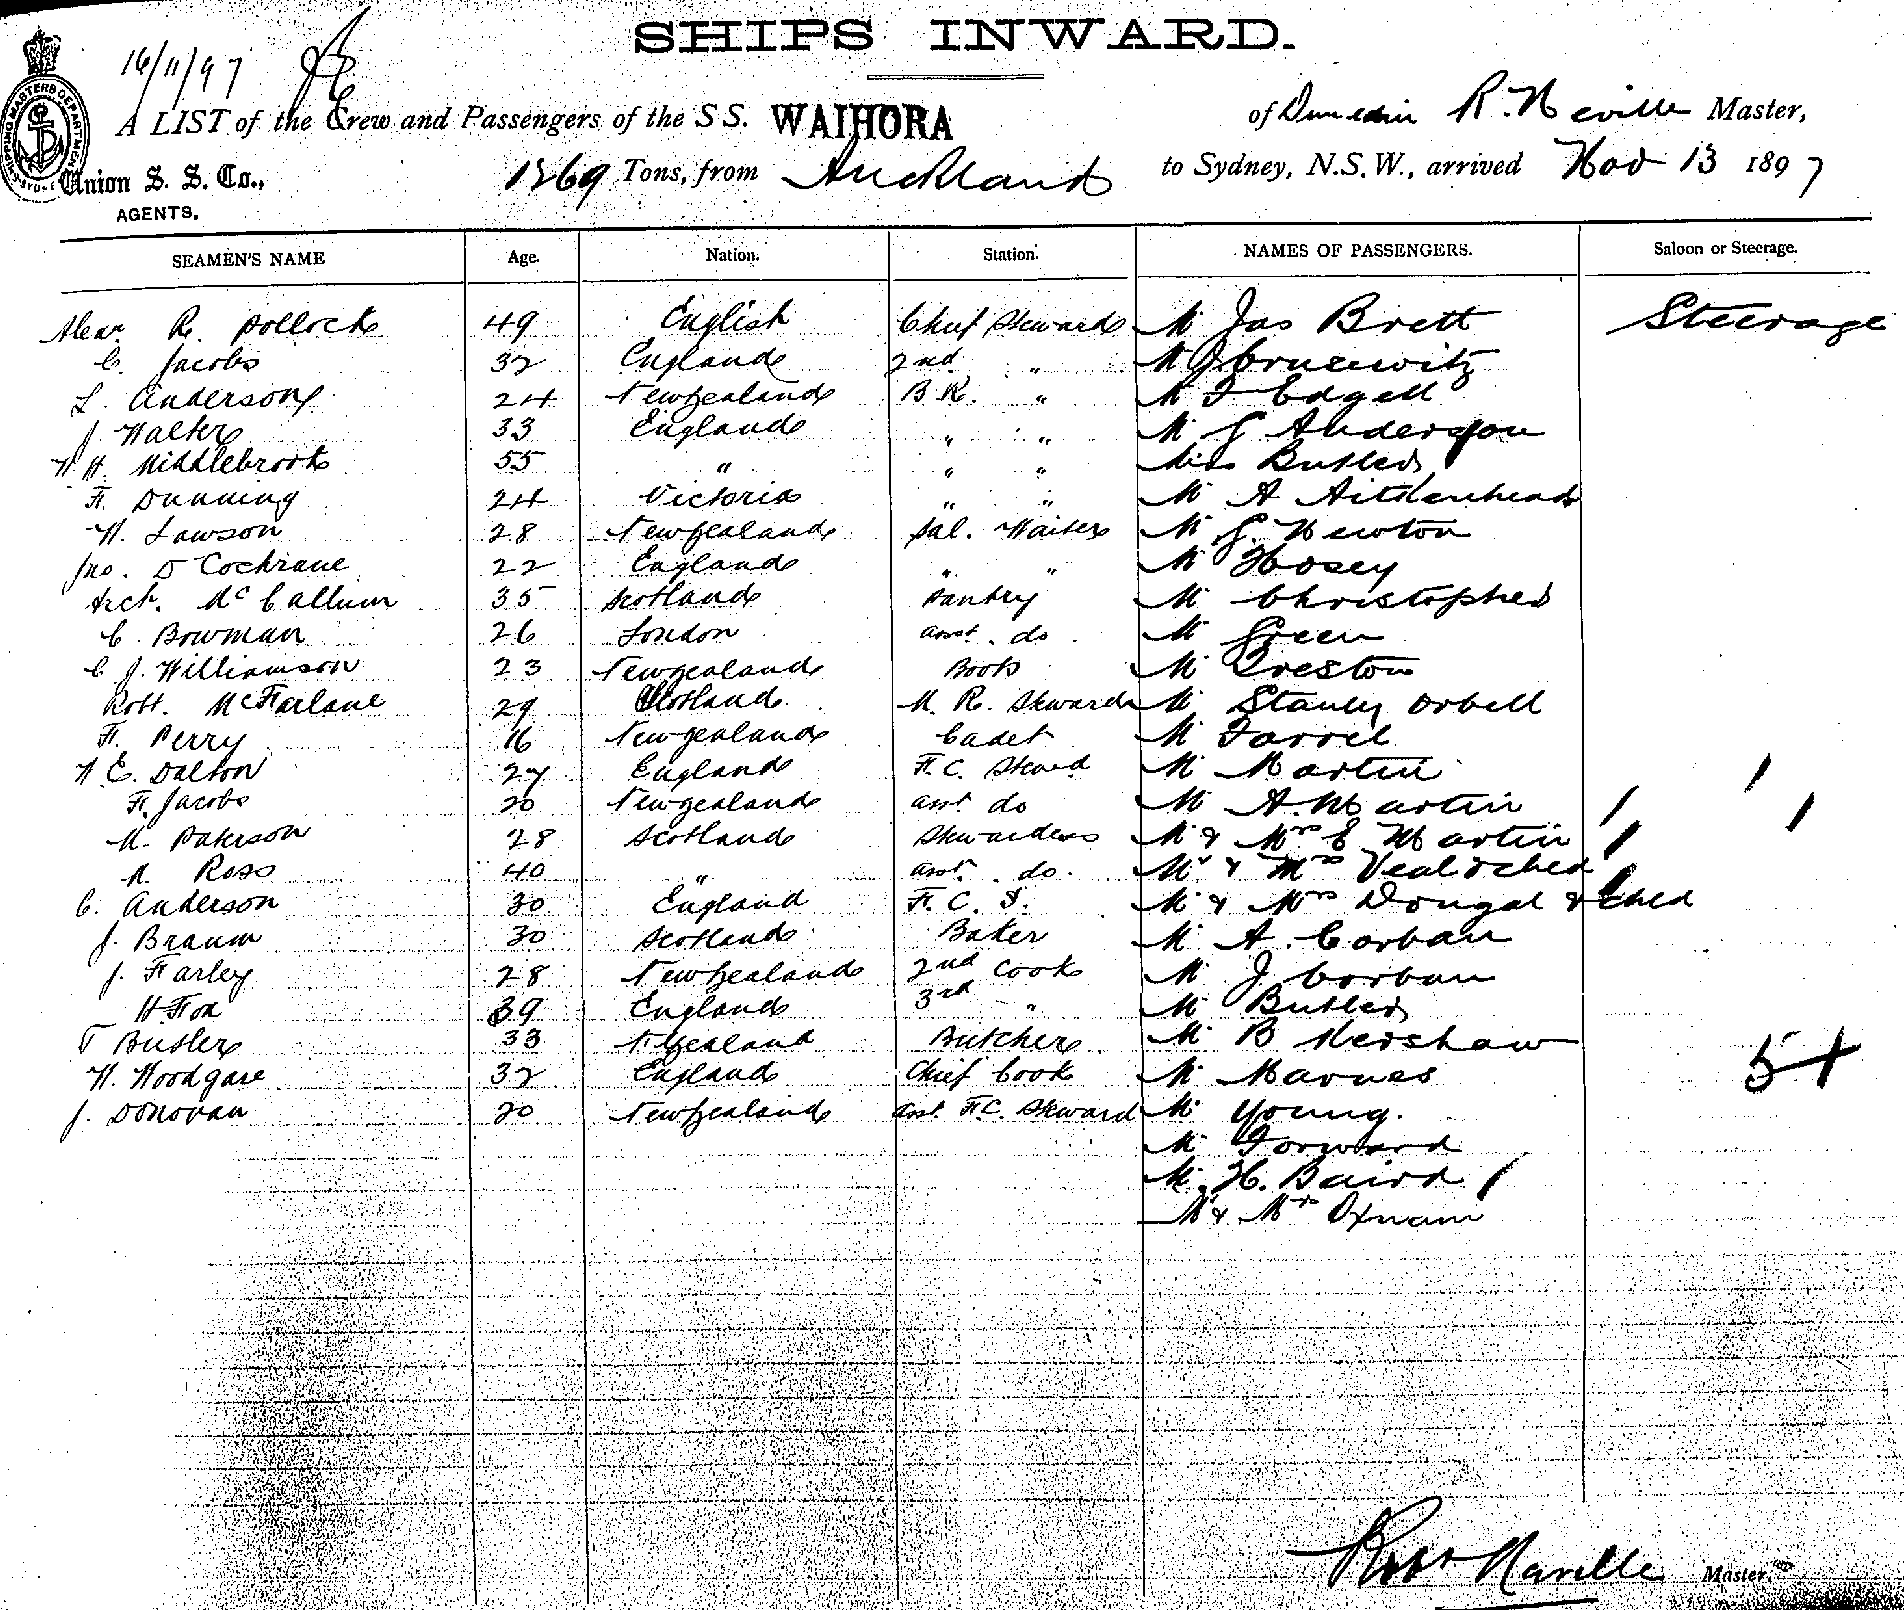 SHIPS INWARD.
16/11/97
A LIST of the Crew and Passengers of the S S. WAIHORA of Dunedin R. Neville Master,
Union S. S. Co., 1269 Tons, from Auckland to Sydney, N.S.W., arrived Nov 13 1897
AGENTS.
SEAMEN'S NAME Age. Nation. Station. NAMES OF PASSENGERS. Saloon or Steerage.
Alexr R. Pollock 49 English Chief Steward Mr Jas Brett Steerage
C. Jacobs 32 England 2nd " Mr
L. Anderson 24 New Zealand B.R. " Mr F Edgell
J. Walker 33 England " " Mr G Anderson
W H. Middlebrook 55 " " " Miss Butler
F. Dunning 24 Victoria " " Mr A Aitkenhead
W. Lawson 28 New Zealand Sal. Waiter Mr G. Newton
Jno. D Cochrane 22 England " " Mr Hosey
Arch. McCallum 35 Scotland Pantry Mr Christopher
C. Bowman 26 London asst. do Mr Green
C J. Williamson 23 New Zealand Books Mr Preston
Robt. McFarlane 29 Scotland M. R. Steward Mr Stanley Orbell
F. Perry 16 New Zealand Cadet Mr Farrel
W E. Dalton 27 England F.C. Steward Mr Martin
F. Jacobs 20 New Zealand asst do Mr A. Martin
M. Paterson 28 Scotland Stewardess Mr & Mrs E Martin
M. Ross 40 " asst. do. Mr & Mrs Veal & child
C. Anderson 30 England F. C. S. Mr & Mrs Dougal & child
J. Braum 30 Scotland Baker Mr A. Corban
J. Farley 28 New Zealand 2nd Cook Mr J Corban
H. Fox 39 England 3rd " Mr Butler
T Butler 33 N Zealand Butcher Mr B Kershaw
W. Woodgate 32 England Chief Cook Mr Barnes 54
J. Donovan 20 New Zealand Asst. F.C. Steward Mr Young.
Mr Forward
Mr H. Baird
Mr & Mrs Oxnam
Robt Neville Master.